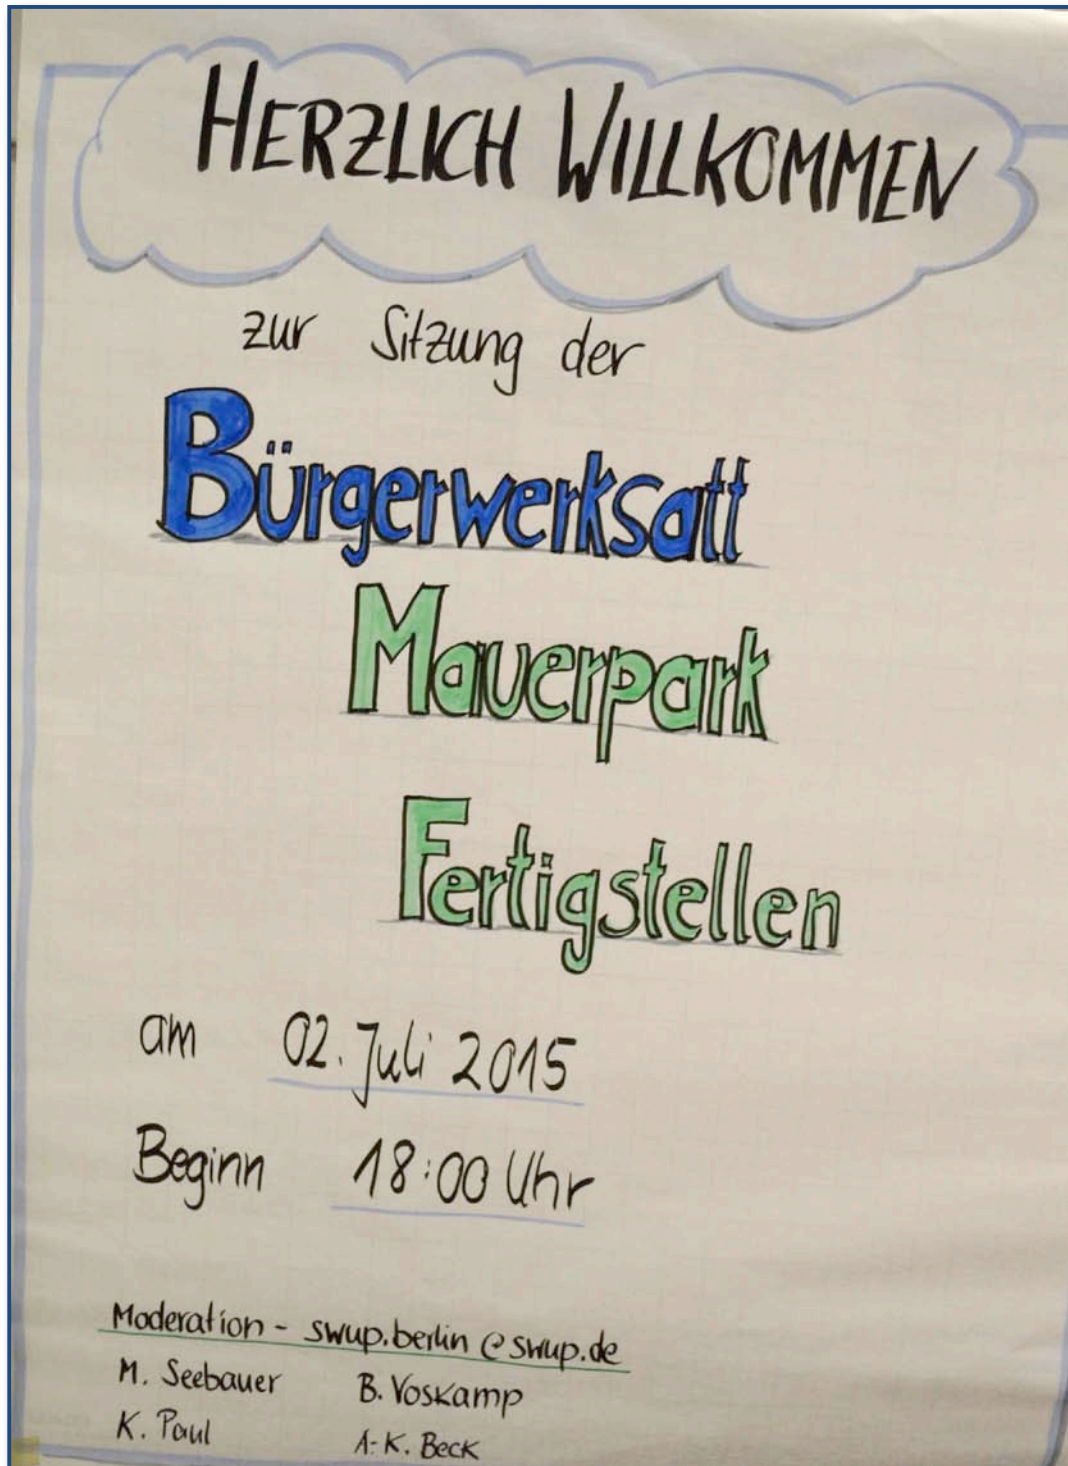 HERZLICH WILLKOMMEN
zur Sitzung der
Bürgerwerksatt
Mauerpark
Fertigstellen
am 02. Juli 2015
Beginn 18:00 Uhr
Moderation - swup.berlin@swup.de
M. Seebauer B. Voskamp
K. Paul A-K. Beck